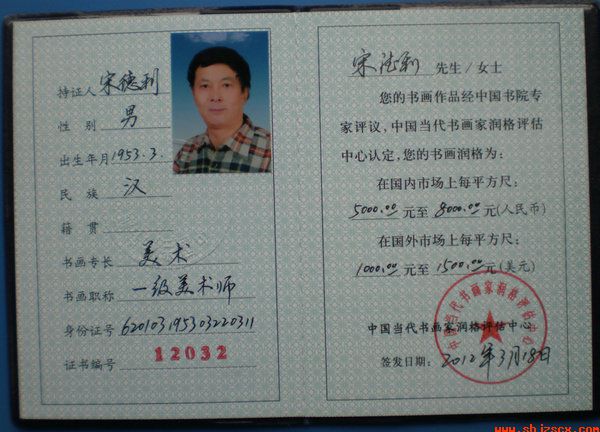 持证人 宋德利
性 别 男
出生年月 1953.3.
民 族 汉
籍 贯
书画专长 美术
书画职称 一级美术师
身份证号 620103195303220311
证书编号 12032
宋德利 先生/女士
您的书画作品经中国书院专
家评议,中国当代书画家润格评估
中心认定,您的书画润格为:
在国内市场上每平方尺:
5000.00 元至 8000.00 元(人民币)
在国外市场上每平方尺:
1000.00 元至 1500.00 元(美元)
中国当代书画家润格评估中心
签发日期: 2012年3月18日
中国当代书画家润格评估中心